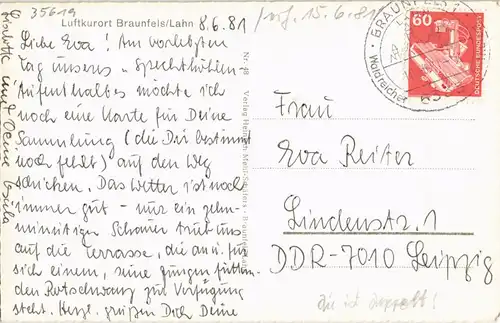 35619
Luftkurort Braunfels/Lahn
8.6.81
15.6.81
Liebe Eva! Am vorletzten
Tag unseres "Spechthöhlen"-
Aufenthaltes möchte ich
noch eine Karte für Deine
Sammlung (die Dir bestimmt
noch fehlt) auf den Weg
schicken. Das Wetter ist noch
immer gut - nur ein zehn-
minütiger Schauer trieb uns
auf die Terrasse, die an u. für
sich einem, seine Jungen fütternden
Rotschwanz zur Verfügung
steht. Herzl. grüßen Dich Deine
und Deine Gisela
Nr. 78 Verlag
BRAUNFELS
Waldreicher
60
DEUTSCHE BUNDESPOST
Frau
Eva Reiter
Lindenstr. 1
DDR-7010 Leipzig
die ist doppelt!